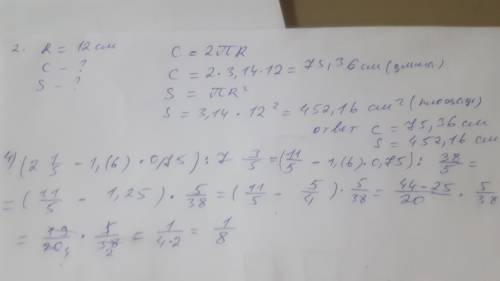 2. R = 12 см
C - ?
S - ?
C = 2ПR
C = 2·3,14·12 = 75,36 см (длина)
S = ПR²
S = 3,14 · 12² = 452,16 см² (площадь)
ответ C = 75,36 см
S = 452,16 см
4) (2 1/5 - 1,(6) · 0,75) : 7 3/5 = (11/5 - 1,(6) · 0,75) : 38/5 =
= (11/5 - 1,25) · 5/38 = (11/5 - 5/4) · 5/38 = 44-25/20 · 5/38
= 19/20 4 · 5/38 2 = 1/4·2 = 1/8